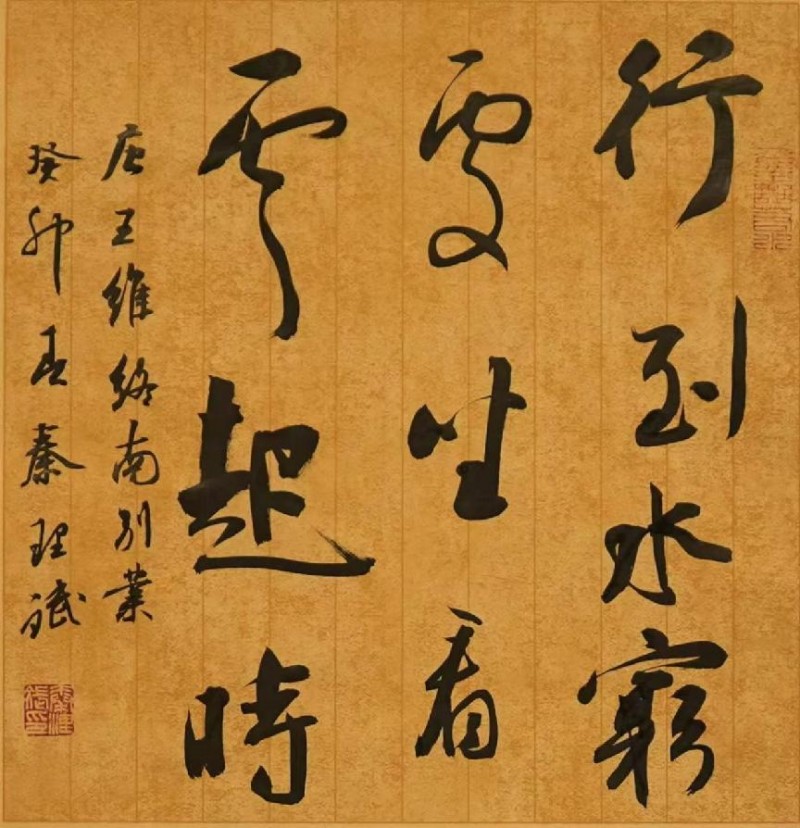 行到水窮
處坐看
雲起時
唐王維終南别業
癸卯春秦理斌